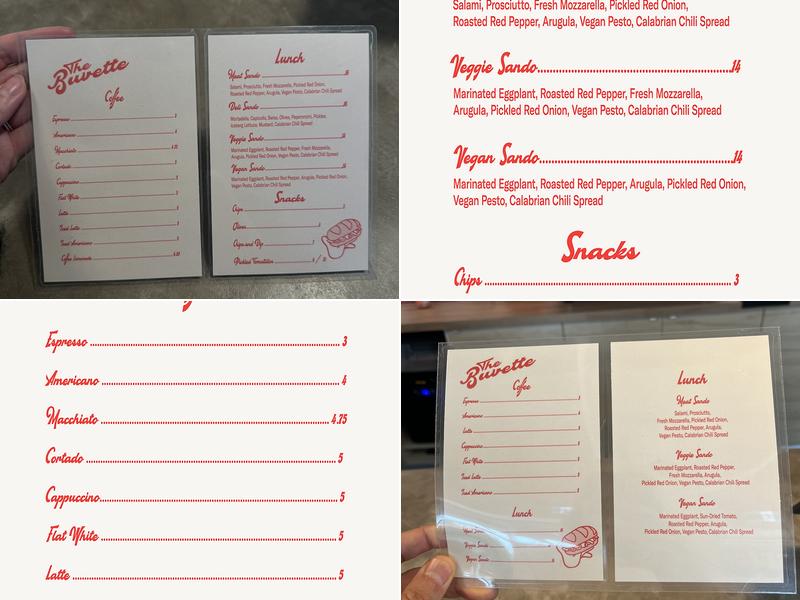 The
Buvette
Coffee
Espresso 3
Americano 4
Macchiato 4.75
Cortado 5
Cappuccino 5
Flat White 5
Latte 5
Iced Latte 5
Iced Americano 5
Coffee Lemonade
Lunch
Meat Sando
Salami, Prosciutto, Fresh Mozzarella, Pickled Red Onion,
Roasted Red Pepper, Arugula, Vegan Pesto, Calabrian Chili Spread
Deli Sando
Mortadella, Capicolla, Swiss, Olives, Peperoncini, Pickles,
Iceberg Lettuce, Mustard, Calabrian Chili Spread
Veggie Sando 14
Marinated Eggplant, Roasted Red Pepper, Fresh Mozzarella,
Arugula, Pickled Red Onion, Vegan Pesto, Calabrian Chili Spread
Vegan Sando 14
Marinated Eggplant, Roasted Red Pepper, Arugula, Pickled Red Onion,
Vegan Pesto, Calabrian Chili Spread
Snacks
Chips
Olives
Chips and Dip
Pickled Tomatillos
Salami, Prosciutto, Fresh Mozzarella, Pickled Red Onion,
Roasted Red Pepper, Arugula, Vegan Pesto, Calabrian Chili Spread
Veggie Sando........14
Marinated Eggplant, Roasted Red Pepper, Fresh Mozzarella,
Arugula, Pickled Red Onion, Vegan Pesto, Calabrian Chili Spread
Vegan Sando........14
Marinated Eggplant, Roasted Red Pepper, Arugula, Pickled Red Onion,
Vegan Pesto, Calabrian Chili Spread
Snacks
Chips ........ 3
Espresso ........ 3
Americano ........ 4
Macchiato ........ 4.75
Cortado ........ 5
Cappuccino........ 5
Flat White ........ 5
Latte ........ 5
The
Buvette
Coffee
Espresso 3
Americano 4
Latte 5
Cappuccino 5
Flat White 5
Iced Latte 5
Iced Americano 5
Lunch
Meat Sando
Veggie Sando
Vegan Sando
Lunch
Meat Sando
Salami, Prosciutto,
Fresh Mozzarella, Pickled Red Onion,
Roasted Red Pepper, Arugula,
Vegan Pesto, Calabrian Chili Spread
Veggie Sando
Marinated Eggplant, Roasted Red Pepper,
Fresh Mozzarella, Arugula,
Pickled Red Onion, Vegan Pesto, Calabrian Chili Spread
Vegan Sando
Marinated Eggplant, Sun-Dried Tomato,
Roasted Red Pepper, Arugula,
Pickled Red Onion, Vegan Pesto, Calabrian Chili Spread